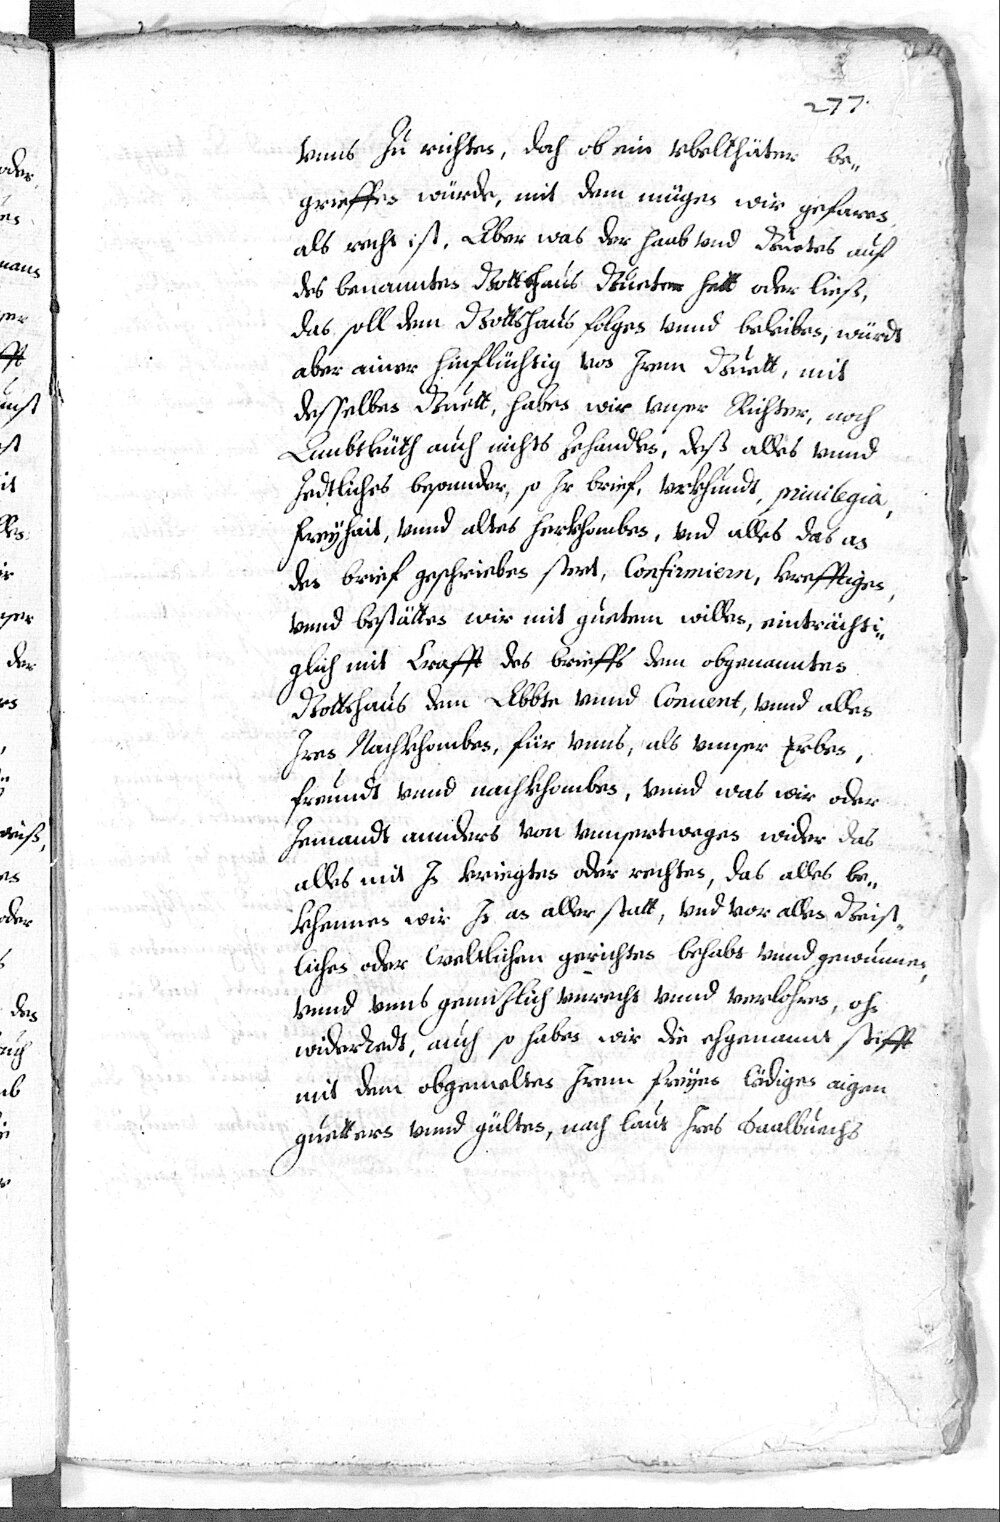 277.
vnns Zu richten, doch ob ein vbelthäter be„
grieffen würde, mit dem mügen wir gefaren
als recht ist, Aber was der haab vnd Guetes auf
des benannten Gottshaus Guetern hett oder ließ,
das soll dem Gottshaus folgen vnnd beleiben, würdt
aber ainer hinflüchtig von Irem Guett, mit
desselben Guett, haben wir vnser Richter, noch
Ambtleüth auch nichts Zehandln, deß alles vnnd
Jedtliches besonnder, so Ir brief, vrkhundt, priuilegia,
freyhait, vnnd altes herkhomben, vnd alles das an
den brief geschrieben stert, Confirmiern, krefftigen,
vnnd bestätten wir mit guetem willen, einträchti„
glich mit Crafft des brieffs dem obgenannten
Gottshaus dem Abbte vnnd Conuent, vnnd allen
Iren Nachkhomben, für vnns, als vnnser Erben,
freundt vnnd nachkhomben, vnnd was wir oder
Jemandt annders von vnnsertwegen wider das
alles mit In kriegten oder rechten, das alles be„
khennen wir In an aller statt, vnd vor allen Geist„
lichen oder Weltlichen gerichten behabt vnnd gewunnen,
vnnd vnns genczlich vnrecht vnnd verlohren, ohn
widerRedt, auch so haben wir die ehgenannt stifft
mit dem obgemelten Irem freyen lödigen aigen
guettern vnnd gülten, nach laut Ires Saalbuechs